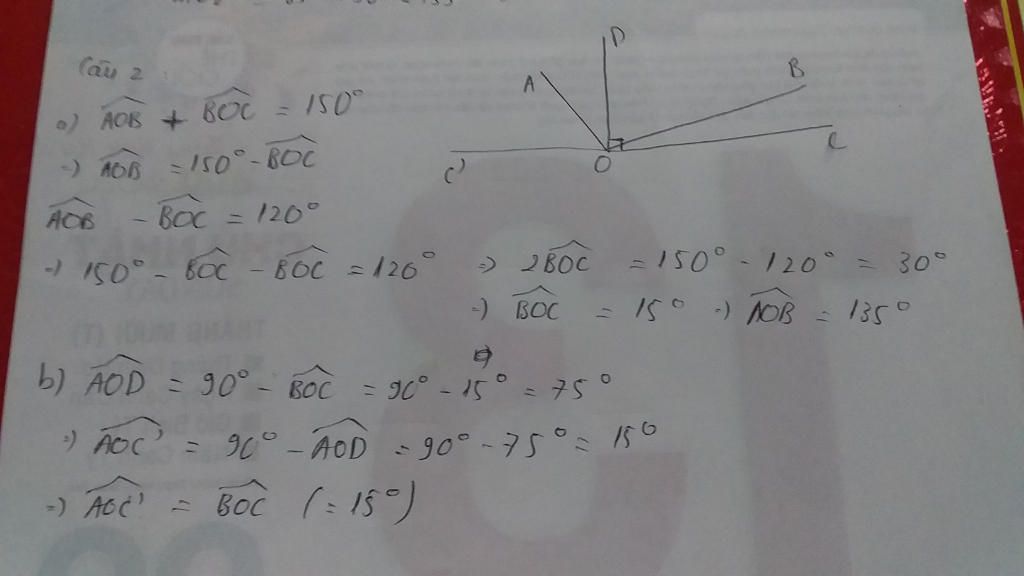 Câu 2
a) AOB + BOC = 150°
=) AOB = 150° - BOC
AOB - BOC = 120°
=) 150° - BOC - BOC = 120° => 2BOC = 150° - 120° = 30°
=) BOC = 15° =) AOB = 135°
b) AOD = 90° - BOC = 90° - 15° = 75°
=) AOC' = 90° - AOD = 90° - 75° = 15°
=) AOC' = BOC (= 15°)
D
A
B
C'
O
C